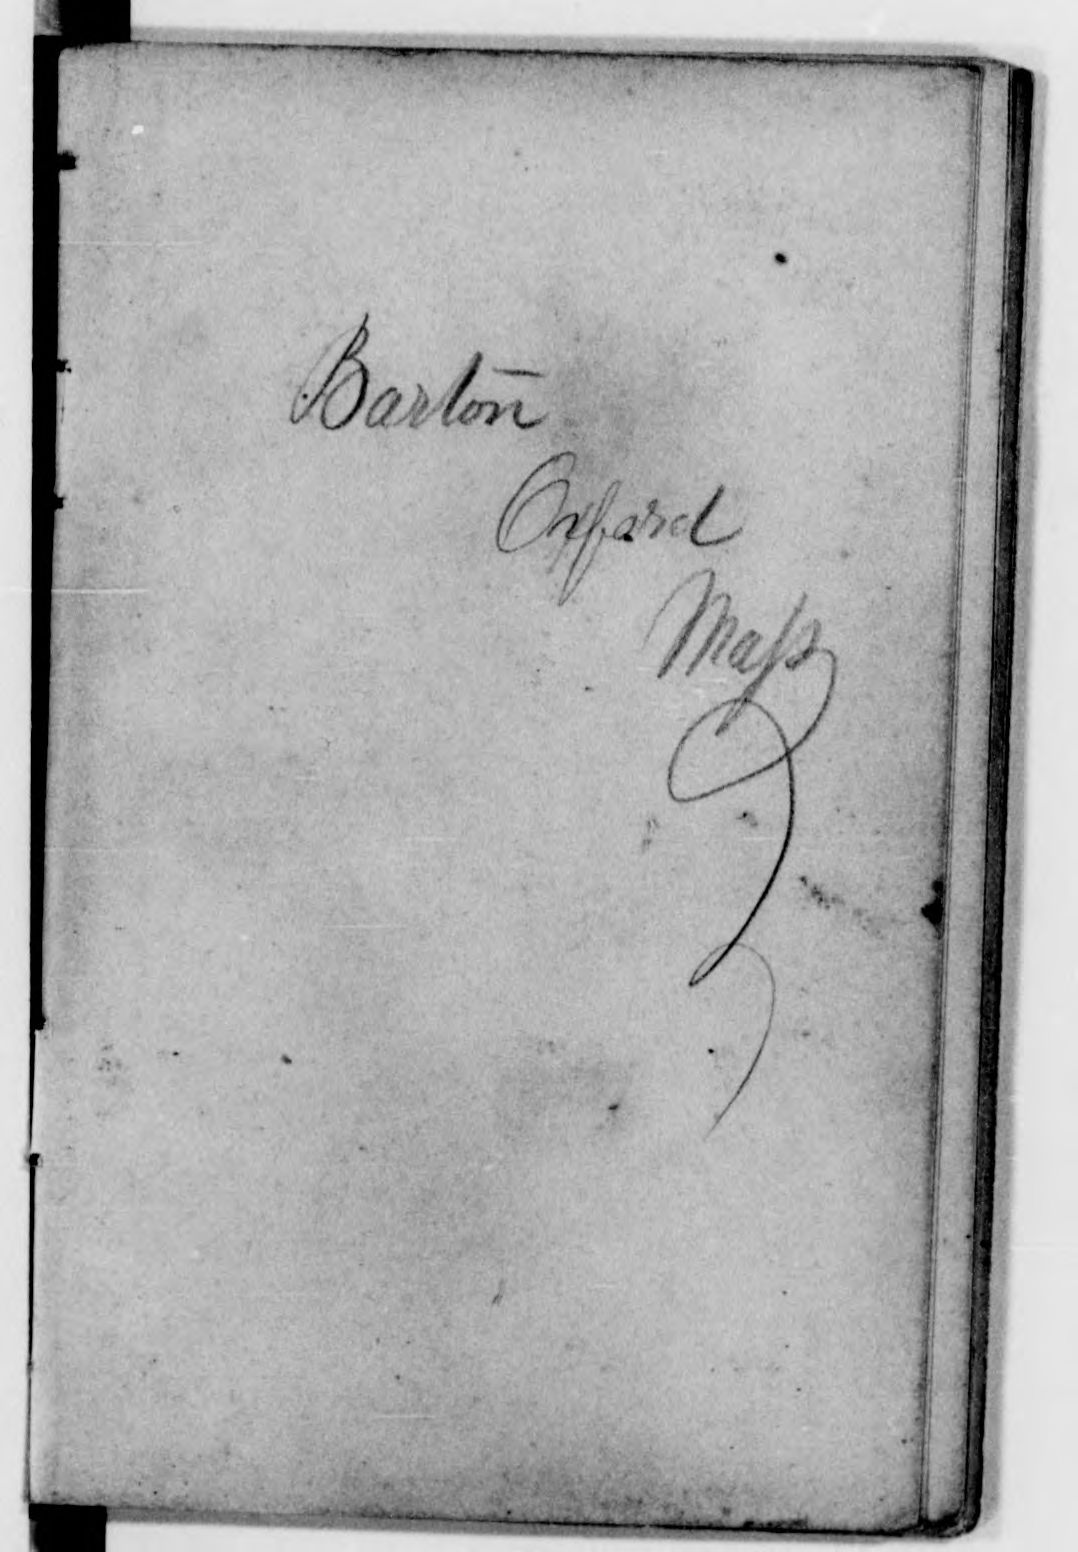 Barton
Oxford
Mass